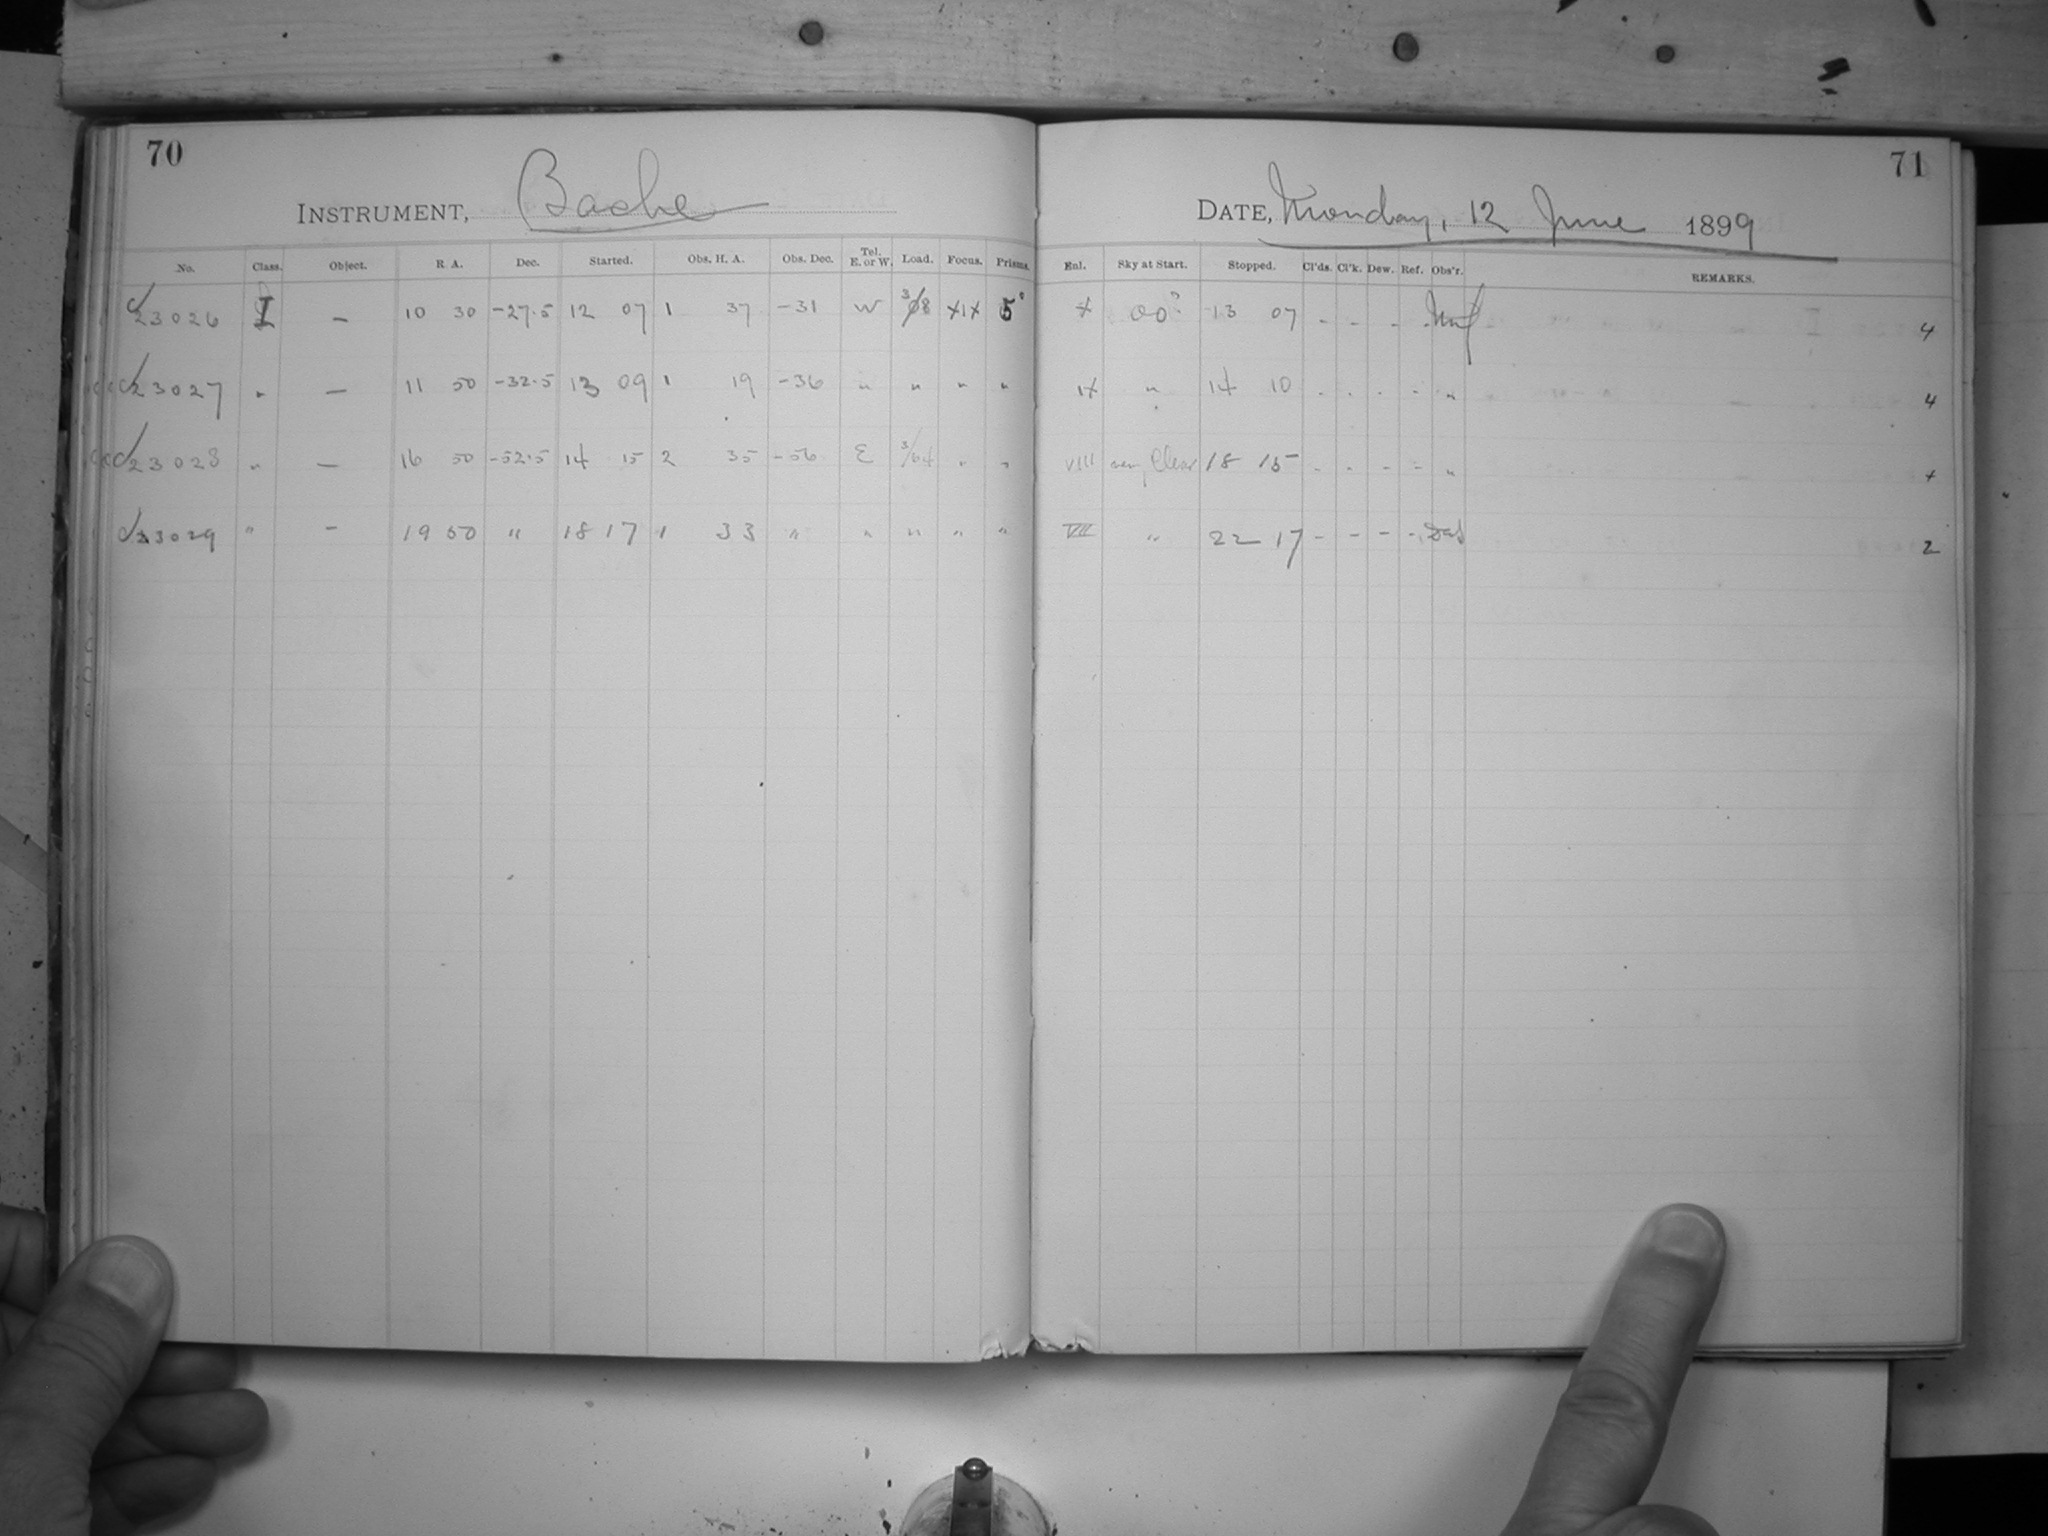 70
INSTRUMENT, Bache
No. Class. Object. R A. Dec. Started. Obs. H. A. Obs. Dec. Tel. E. or W. Load. Focus. Prisms.
23026 I – 10 30 -27.5 12 07 1 37 -31 W XIX 5°
23027 " – 11 50 -32.5 13 09 1 19 -36 " " " "
23028 " – 16 50 -52.5 14 15 2 35 -56 E 3/64 " "
23029 " – 19 50 " 18 17 1 33 " " " " "
71
DATE, Monday, 12 June 1899
Enl. Sky at Start. Stopped. Cl'ds. Cl'k. Dew. Ref. Obs'r. REMARKS.
X 13 07 - - - - 4
IX " 14 10 - - - - " 4
VIII Clear 18 15 - - - - "
VII " 22 17 - - - - 2